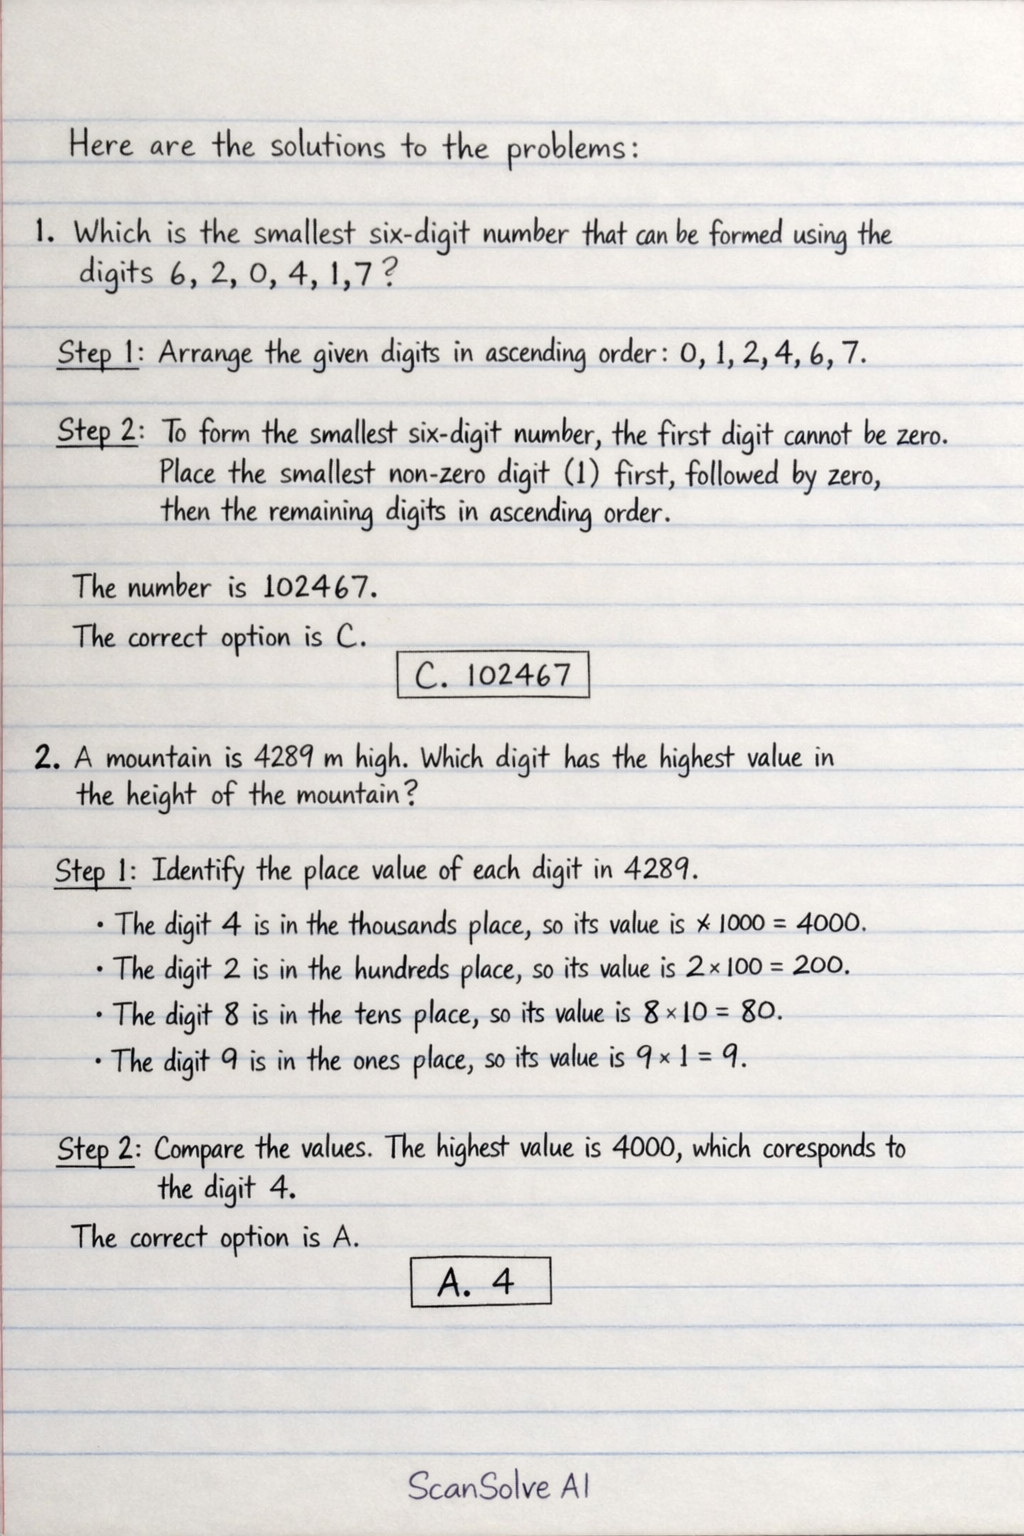 Here are the solutions to the problems:
1. Which is the smallest six-digit number that can be formed using the
digits 6, 2, 0, 4, 1,7?
Step 1: Arrange the given digits in ascending order: 0, 1, 2, 4, 6, 7.
Step 2: To form the smallest six-digit number, the first digit cannot be zero.
Place the smallest non-zero digit (1) first, followed by zero,
then the remaining digits in ascending order.
The number is 102467.
The correct option is C.
C. 102467
2. A mountain is 4289 m high. Which digit has the highest value in
the height of the mountain?
Step 1: Identify the place value of each digit in 4289.
• The digit 4 is in the thousands place, so its value is × 1000 = 4000.
• The digit 2 is in the hundreds place, so its value is 2 × 100 = 200.
• The digit 8 is in the tens place, so its value is 8 × 10 = 80.
• The digit 9 is in the ones place, so its value is 9 × 1 = 9.
Step 2: Compare the values. The highest value is 4000, which coresponds to
the digit 4.
The correct option is A.
A. 4
ScanSolve AI